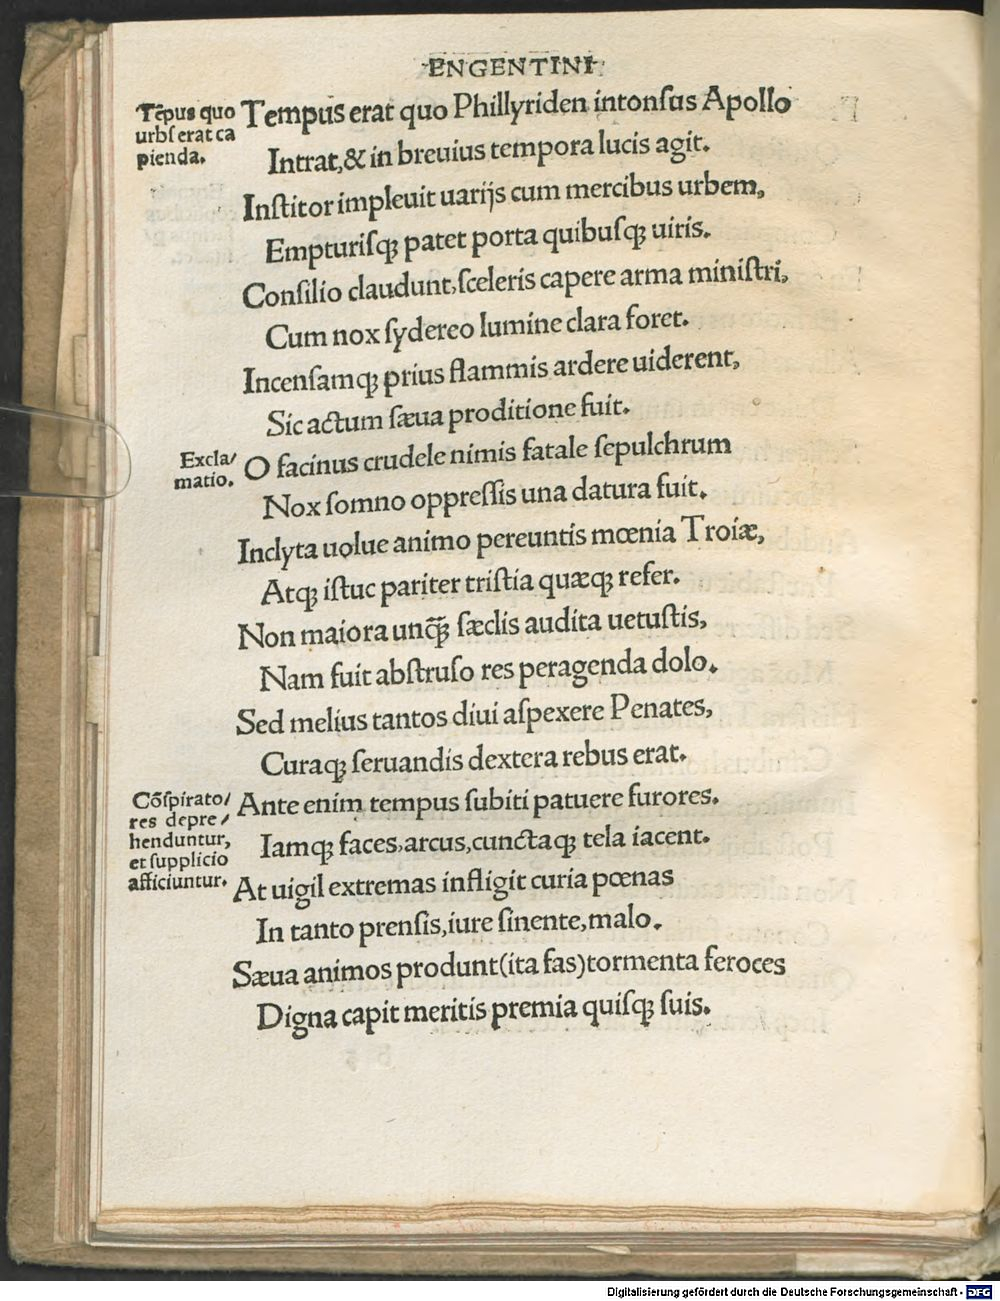 ENGENTINI
Tēpus quo
urbſ erat ca
pienda.
Tempus erat quo Phillyriden intonſus Apollo
Intrat,& in breuius tempora lucis agit.
Inſtitor impleuit uarijs cum mercibus urbem,
Empturiſqꝫ patet porta quibuſqꝫ uiris.
Conſilio claudunt,ſceleris capere arma miniſtri,
Cum nox ſydereo lumine clara foret.
Incenſamqꝫ prius flammis ardere uiderent,
Sic actum ſæua proditione fuit.
Excla/
matio.
O facinus crudele nimis fatale ſepulchrum
Nox ſomno oppreſſis una datura fuit.
Inclyta uolue animo pereuntis mœnia Troiæ,
Atqꝫ iſtuc pariter triſtia quæqꝫ refer.
Non maiora unq̄ꝫ ſæclis audita uetuſtis,
Nam fuit abſtruſo res peragenda dolo.
Sed melius tantos diui aſpexere Penates,
Curaqꝫ ſeruandis dextera rebus erat.
Cōſpirato/
res depre/
henduntur,
et ſupplicio
afficiuntur.
Ante enim tempus ſubiti patuere furores.
Iamqꝫ faces,arcus,cunctaqꝫ tela iacent.
At uigil extremas infligit curia pœnas
In tanto prenſis,iure ſinente,malo.
Sæua animos produnt(ita fas)tormenta feroces
Digna capit meritis premia quiſqꝫ ſuis.
Digitalisierung gefördert durch die Deutsche Forschungsgemeinschaft - DFG